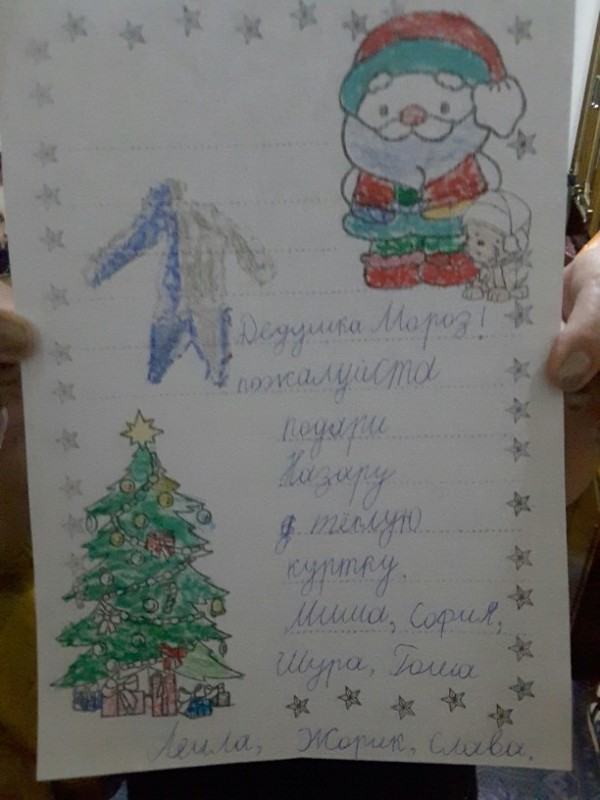 Дедушка Мороз!
пожалуйста
подари
Назару
тёплую
куртку.
Миша, София,
Шура, Гоша
Лейла, Жорик, Слава.